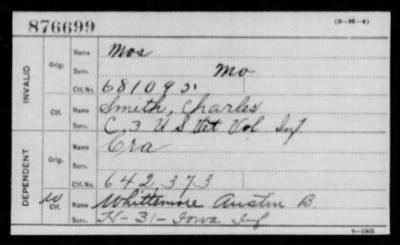 876699
(3-H-4)
INVALID
Orig.
Name Mos
Serv. Mo
Ctf. No. 681095.
Ctf.
Name Smith, Charles
Serv. C, 3 U S Vet Vol Inf
DEPENDENT
Orig.
Name Era
Serv.
Ctf. No. 642,373
W Ctf.
Name Whittemore Austin B.
Serv. H-31-Iowa Inf